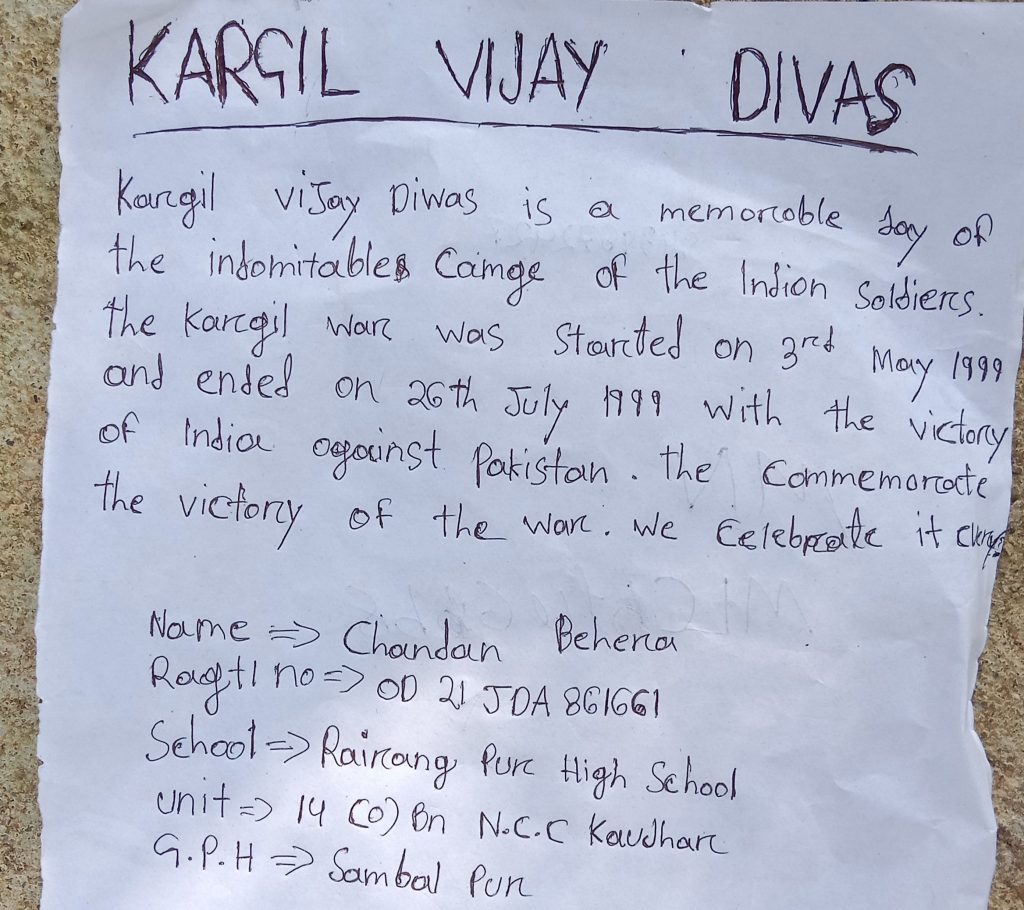 KARGIL VIJAY DIVAS
Kargil viJay Diwas is a memorable day of
the indomitables Caimge of the Indian Soldiers.
the Kargil war was Started on 3rd May 1999
and ended on 26th July 1999 with the victory
of India against Pakistan. the Commemorate
the victory of the war. we Celebrate it
Name => Chandan Behera
Ragtl no => OD 21 JDA 861661
School => Rairang Pur High School
unit => 14 (O) Bn N.C.C Kaudhar
G.P.H => Sambal Pur